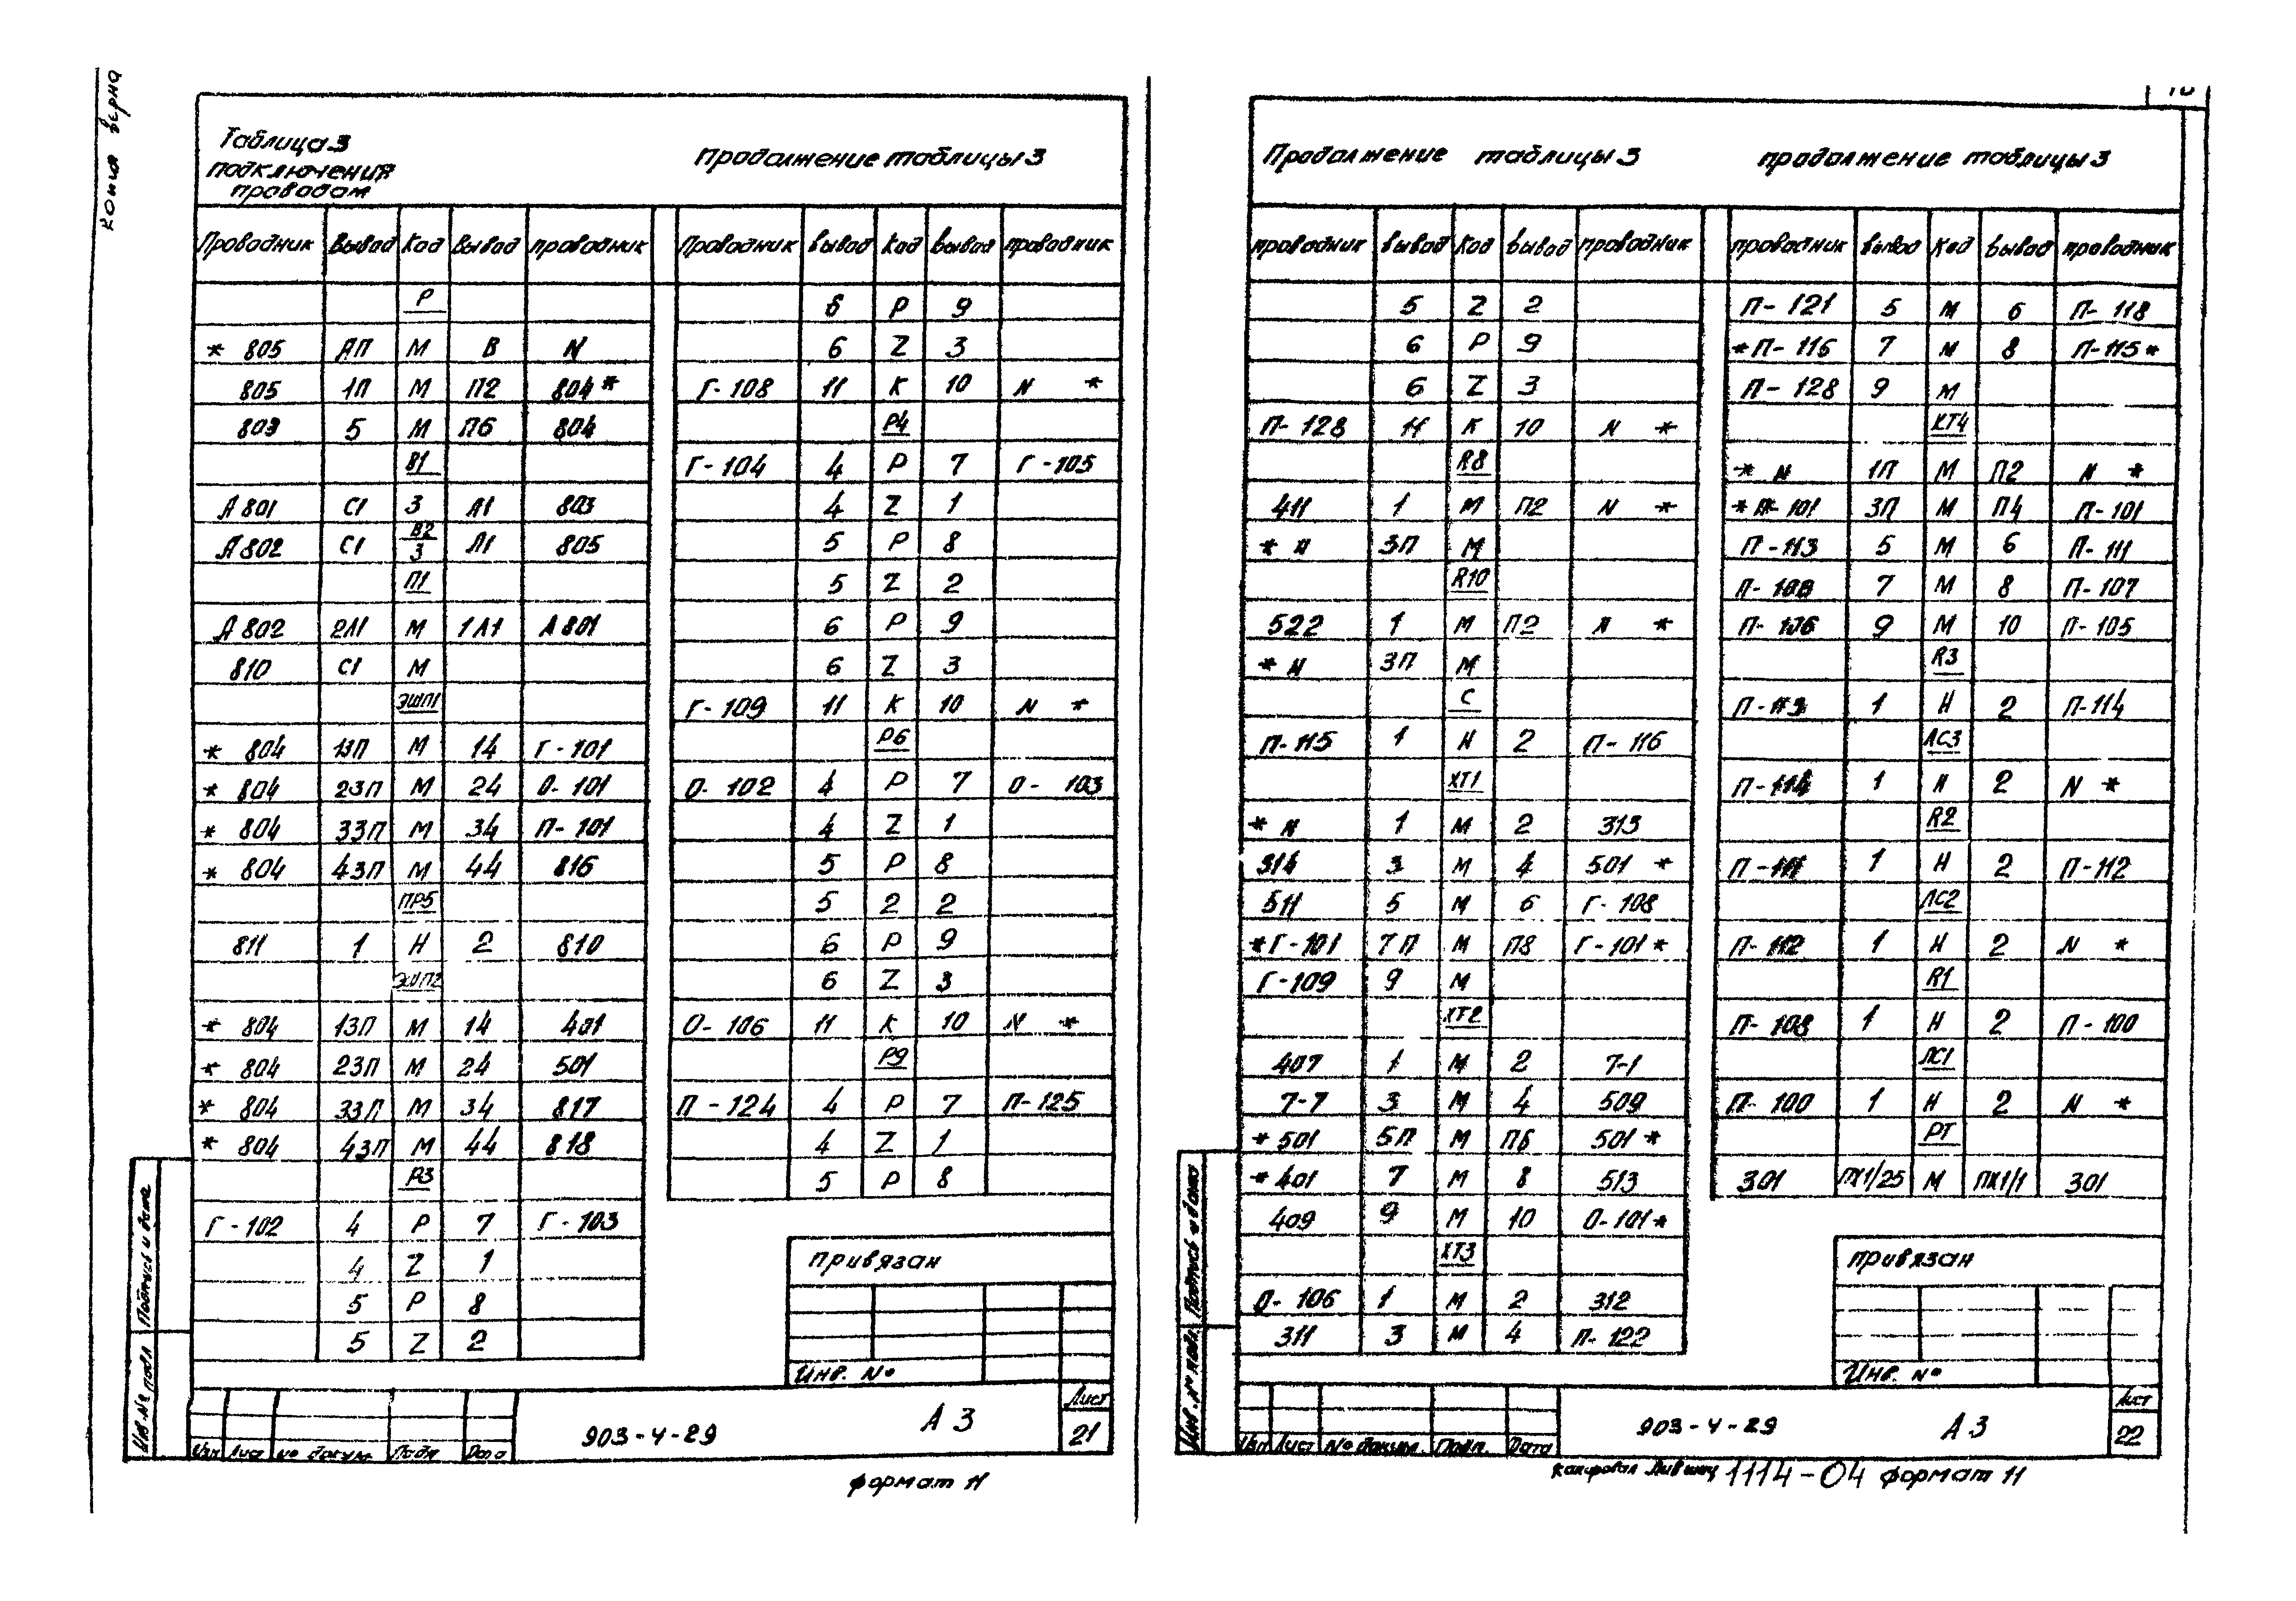 копия верна
Таблица 3
подключения
проводом
Продолжение таблицы 3
Проводник Вывод Код Вывод проводник
Р
* 805 АП М В N
805 1П М П2 804 *
803 5 М П6 804
В1
А801 С1 З Л1 803
В2
А802 С1 З Л1 805
П1
А802 2Л1 М 1Л1 А801
810 С1 М
ЭШП1
* 804 13П М 14 Г-101
* 804 23П М 24 О-101
* 804 33П М 34 П-101
* 804 43П М 44 816
ПР5
811 1 Н 2 810
ЭШП2
* 804 13П М 14 401
* 804 23П М 24 501
* 804 33П М 34 817
* 804 43П М 44 818
Р3
Г-102 4 Р 7 Г-103
4 Z 1
5 Р 8
5 Z 2
Проводник вывод Код вывод проводник
6 Р 9
6 Z 3
Г-108 11 К 10 N *
Р4
Г-104 4 Р 7 Г-105
4 Z 1
5 Р 8
5 Z 2
6 Р 9
6 Z 3
Г-109 11 К 10 N *
Р6
О-102 4 Р 7 О-103
4 Z 1
5 Р 8
5 2 2
6 Р 9
6 Z 3
О-106 11 К 10 N *
Р9
П-124 4 Р 7 П-125
4 Z 1
5 Р 8
привязан
Инв. №
Изм Лист № докум. Подп Дата
903-4-29
А 3
Лист
21
Инв.№ подл Подпись и дата
формат 11
Продолжение таблицы 3
продолжение таблицы 3
проводник вывод Код вывод проводник
5 Z 2
6 Р 9
6 Z 3
П-128 11 К 10 N *
R8
411 1 М П2 N *
* N 3П М
R10
522 1 М П2 N *
* N 3П М
С
П-115 1 Н 2 П-116
ХТ1
* N 1 М 2 313
314 3 М 4 501 *
511 5 М 6 Г-108
*Г-101 7П М П8 Г-101 *
Г-109 9 М
ХТ2
407 1 М 2 7-1
7-7 3 М 4 509
* 501 5П М П6 501 *
* 401 7 М 8 513
409 9 М 10 О-101 *
ХТ3
О-106 1 М 2 312
311 3 М 4 П-122
проводник вывод Код вывод проводник
П-121 5 М 6 П-118
*П-116 7 М 8 П-115 *
П-128 9 М
ХТ4
* N 1П М П2 N *
* П-101 3П М П4 П-101
П-113 5 М 6 П-111
П-108 7 М 8 П-107
П-106 9 М 10 П-105
R3
П-113 1 Н 2 П-114
ЛС3
П-114 1 Н 2 N *
R2
П-111 1 Н 2 П-112
ЛС2
П-112 1 Н 2 N *
R1
П-108 1 Н 2 П-100
ЛС1
П-100 1 Н 2 N *
РТ
301 ПХ1/25 М ПХ1/1 301
привязан
Инв. №
Изм Лист № докум. Подп. Дата
903-4-29
А 3
Лист
22
Инв.№ подл Подпись и дата
копировал 1114-04 формат 11